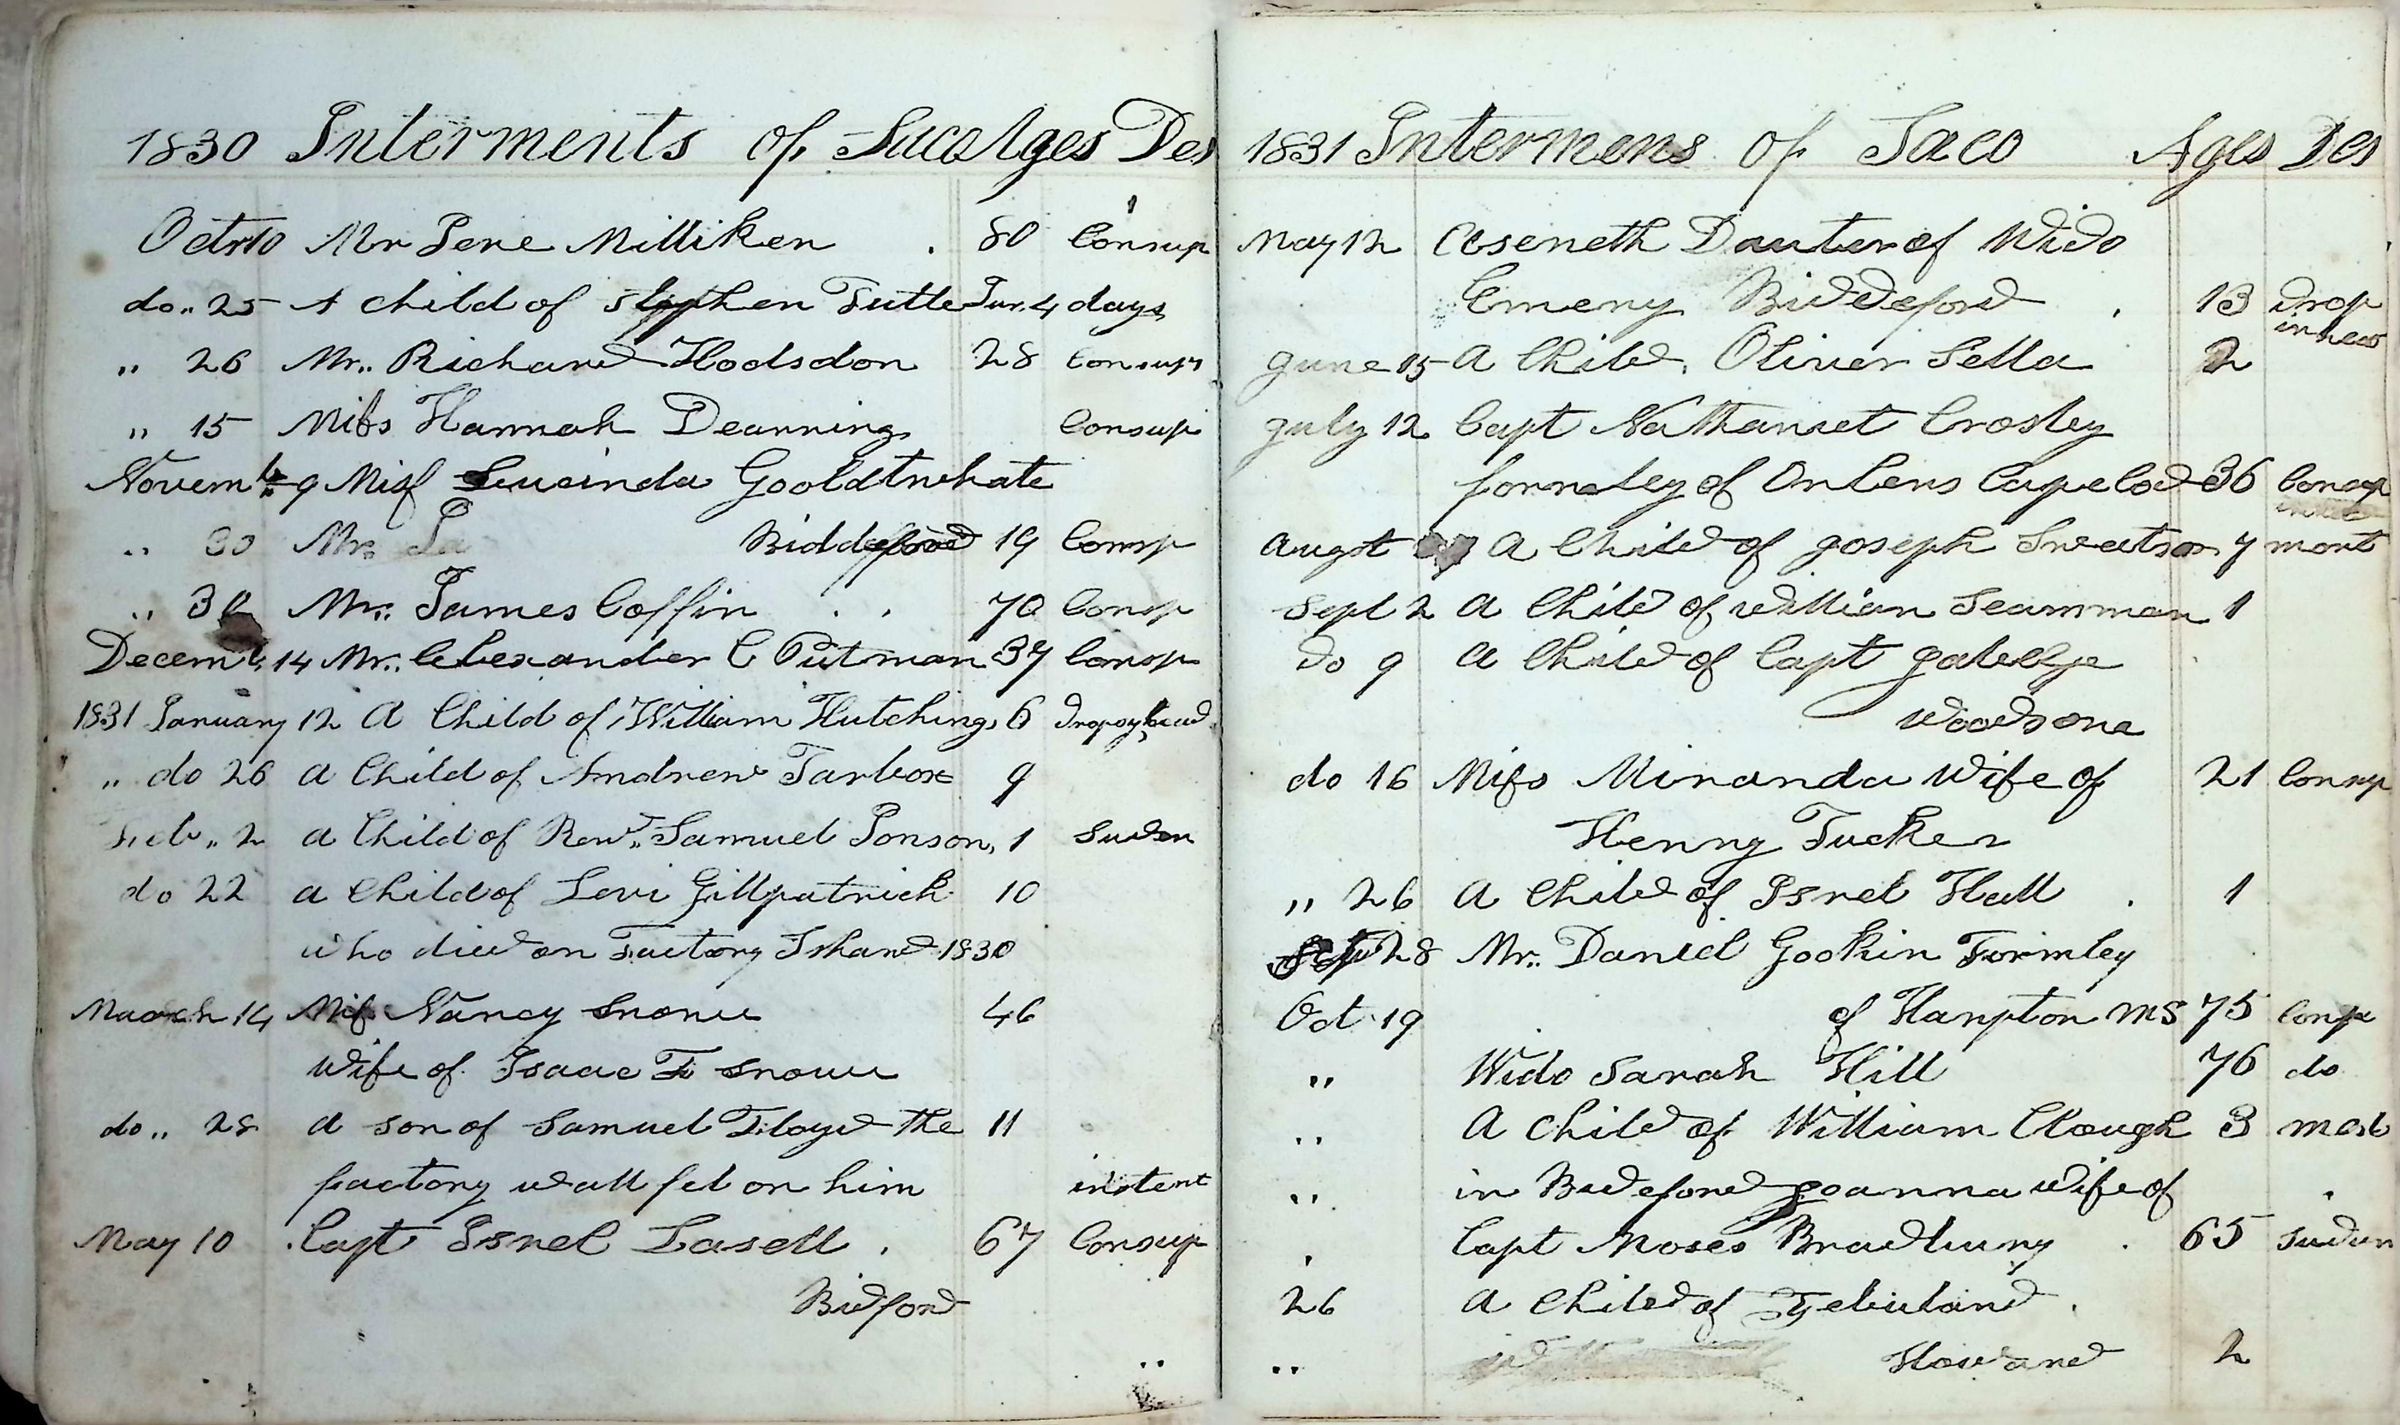 1830 Interments of Saco Ages Des
Octr 10 Mr Jere Milliken . 80 Consup
do .. 25 A child of Stephen Tutle Jur. 4 days
" 26 Mr.. Richard Hodsdon 28 Consup
" 15 Miss Hannah Dearning Consup
Novemb 9 Miss Lucinda Gooldtwhate
" 30 Mr. Biddeford 19 Consp
" 30 Mr. James Coffin . . 70 Consp
Decemb. 14 Mr. Alexander C Putman 37 Consp
1831 January 12 A Child of William Hutchings 6 dropsy head
" do 26 a Child of Andrew Tarbox 9
Feb .. 2 a Child of Revd.. Samuel Jonson, 1 Suden
do 22 a Child of Levi Gillpatrick 10
who died on Factory Island 1830
March 14 Miss Nancy Snowe 46
Wife of Isaac T Snowe
do .. 28 a son of Samuel Floyd the 11
factory wall fel on him instent
May 10 Capt Isrel Lasell . 67 Consup
Bidford
1831 Intermens of Saco Ages Des
May 12 Aseneth Dauter of Wido
Emery Biddeford . 13 Drop
in head
June 15 A Child. Oliver Sella 2
July 12 Capt Nathaniel Crosley
formley of Orlens Cape Cod 36 Consup
Augst A Child of Joseph Sweetson 7 mont
Sept 2 A Child of William Scamman 1
Do 9 A Child of Capt
Woodsone
do 16 Miss Miranda Wife of 21 Consup
Henry Tucker
" 26 A Child of Isrel Hall . 1
Sept 28 Mr.. Daniel Gookin Formley
Oct 19 of Hanpton MS 75 Consp
" Wido Sarah Hill 76 do
" A Child of William Clough 3
" in Bideford Joanna Wife of
Capt Moses Bradbury . 65 Suden
26 A Child of
" Howard 2